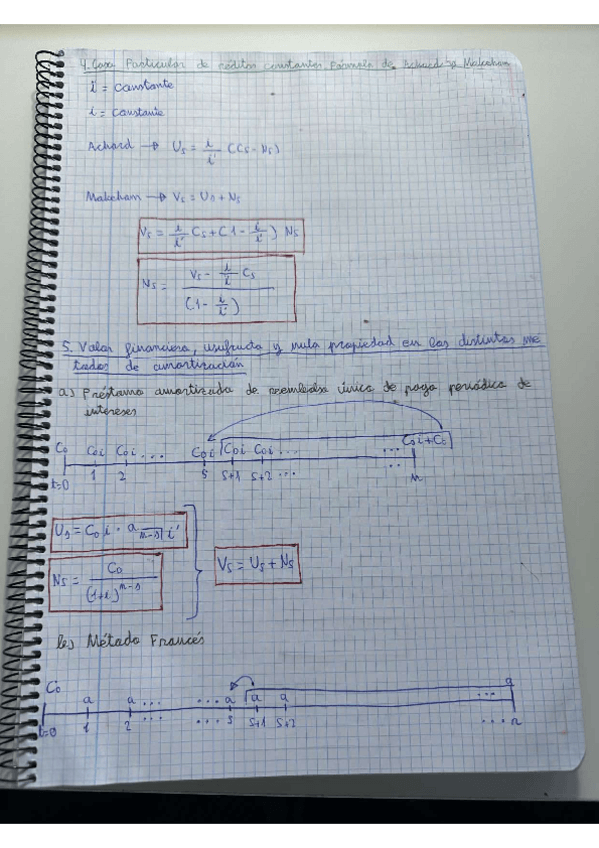 4. Caso Particular de réditos constantes. Fórmula de Achard y Makeham
i' = constante
i = constante
Achard → Us = i/i' (Cs - Ns)
Makeham → Vs = Us + Ns
Vs = i/i' Cs + (1 - i/i') Ns
Ns = (Vs - i/i' Cs) / (1 - i/i')
5. Valor financiero, usufructo y nula propiedad en los distintos mé
todos de amortización
a) Préstamo amortizado de reembolso único de pago periódico de
intereses
C0 C0i C0i ... C0i C0i C0i ... ... C0i+C0
t=0 1 2 s s+1 s+2 ... ... n
Us = C0 i · a n-s| i'
Ns = C0 / (1+i)^n-s
Vs = Us + Ns
b) Método Francés
C0 a a ... ... a a a ... a
t=0 1 2 ... ... s s+1 s+2 ... n